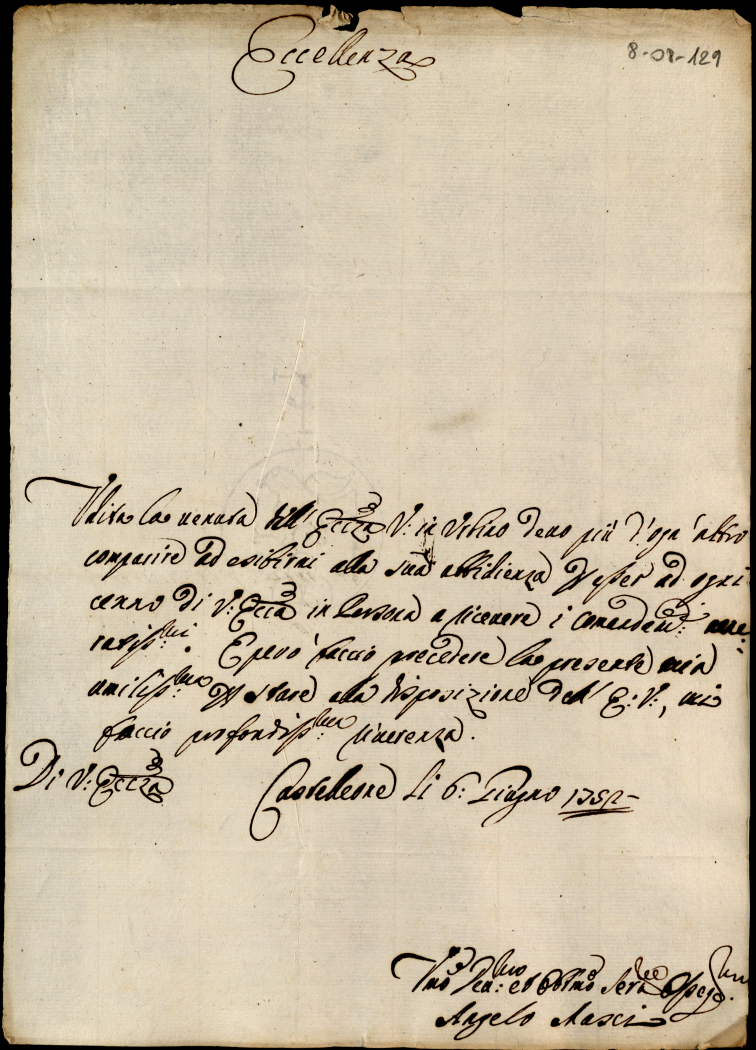 Eccellenza
8-08-129
Udita la venuta dell' Eccza V: in Urbino devo più d'ogn'altro
comparire ad esibirmi alla sua ubbidienza per esser ad ogni
cenno di V: Eccza in Persona a ricevere i Comandam: vene=
ratiss:mi. E però faccio precedere la presente mia
umiliss:ma per stare alla disposizione dell' E: V:, mi
faccio profondiss:ma riverenza.
Di V: Eccza
Castelleone li 6: Giugno 1752
Umo Dev:mo et Obblmo Serre Osseqmo
Angelo Masci